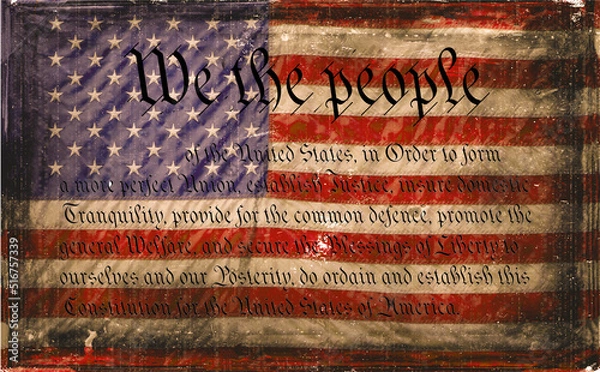 We the people
of the United States, in Order to form
a more perfect Union, establish Justice, insure domestic
Tranquility, provide for the common defence, promote the
general Welfare, and secure the Blessings of Liberty to
ourselves and our Posterity, do ordain and establish this
Constitution for the United States of America.
Adobe Stock | #516757339